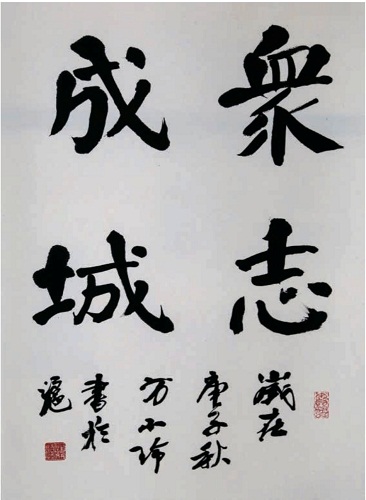 衆志
成城
歲在
庚子秋
小
書於
滬